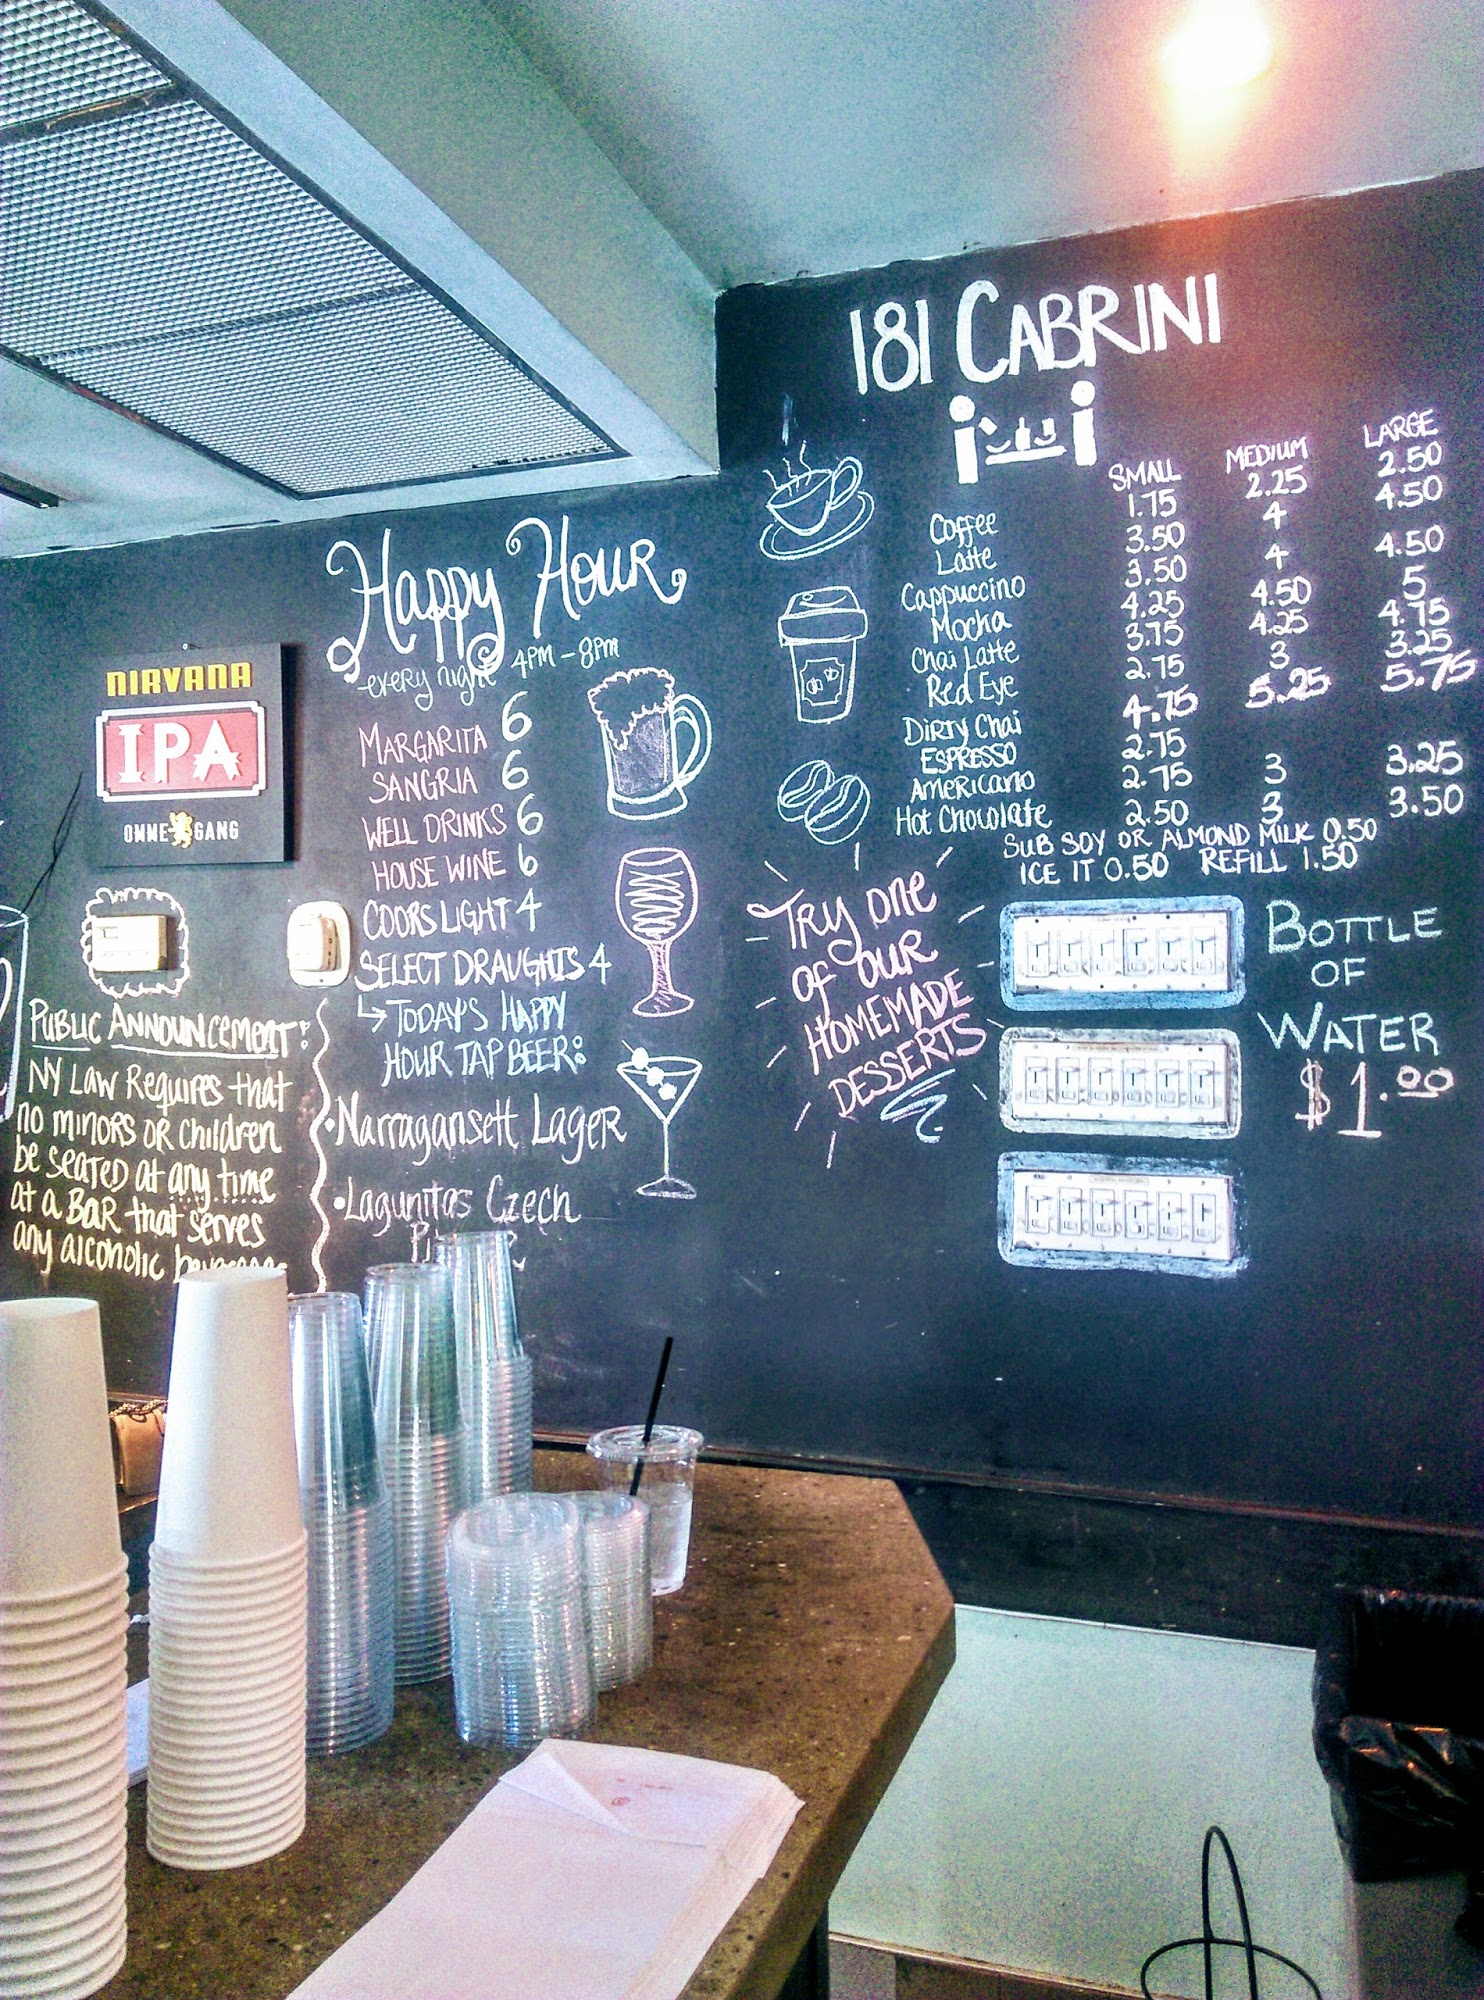 181 CABRINI
SMALL MEDIUM LARGE
Coffee 1.75 2.25 2.50
Latte 3.50 4 4.50
Cappuccino 3.50 4 4.50
Mocha 4.25 4.50 5
Chai Latte 3.75 4.25 4.75
Red Eye 2.75 3 3.25
Dirty Chai 4.75 5.25 5.75
ESPRESSO 2.75
Americano 2.75 3 3.25
Hot Chocolate 2.50 3 3.50
SUB SOY OR ALMOND MILK 0.50
ICE IT 0.50 REFILL 1.50
Happy Hour
every night 4PM - 8PM
MARGARITA 6
SANGRIA 6
WELL DRINKS 6
HOUSE WINE 6
COORS LIGHT 4
SELECT DRAUGHTS 4
↳ TODAY'S HAPPY
HOUR TAP BEER:
• Narragansett Lager
• Lagunitas Czech
NIRVANA
IPA
OMMEGANG
PUBLIC ANNOUNCEMENT:
NY LAW REQUIRES that
no minors or children
be seated at any time
at a BAR that serves
any alcoholic
TRY ONE
of OUR
HOMEMADE
DESSERTS
BOTTLE
OF
WATER
$1.00